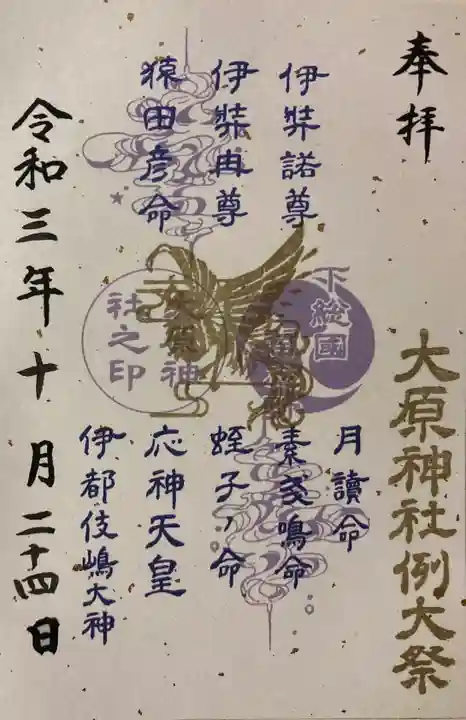 奉拝
大原神社例大祭
伊弉諾尊
伊弉冉尊
猿田彦命
月讀命
素戔鳴命
蛭子ノ命
応神天皇
伊都伎嶋大神
下総國
大原神
社之印
令和三年十月二十四日